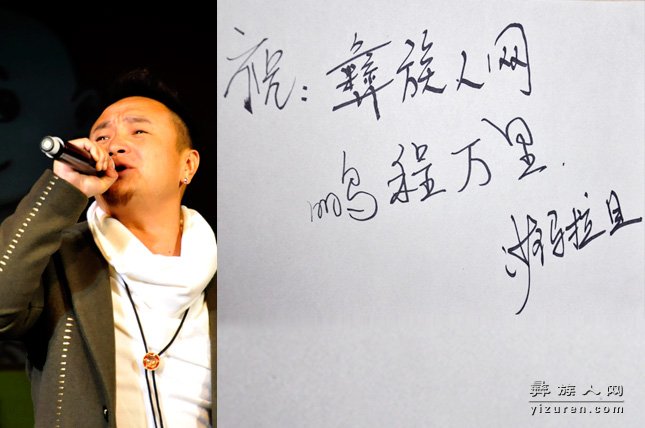 祝：彝族人网
鹏程万里.
沙玛拉且
彝族人网
yizuren.com